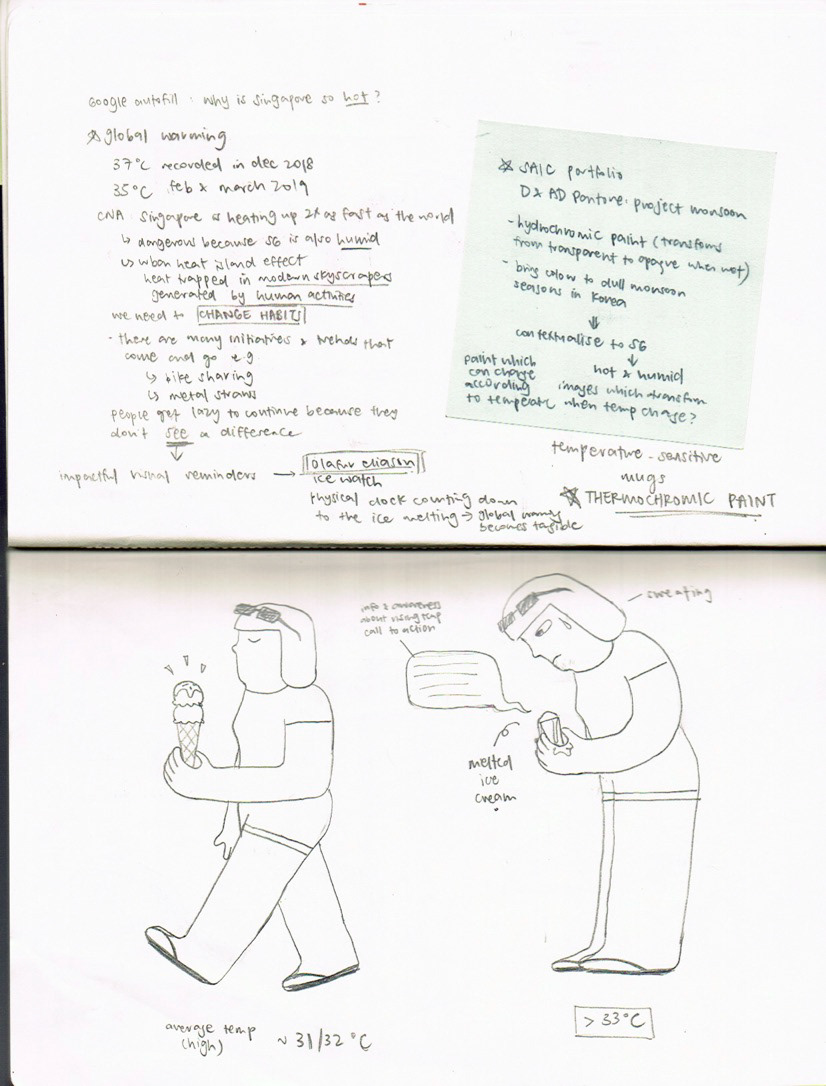 Google autofill : why is singapore so hot ?
global warming
37°C recorded in dec 2018
35°C feb & march 2019
CNA singapore is heating up 2x as fast as the world
↳ dangerous because SG is also humid
↳ urban heat island effect
heat trapped in modern skyscrapers
generated by human activities
we need to CHANGE HABITS
- there are many initiatives & trends that
come and go e.g
↳ bike sharing
↳ metal straws
people get lazy to continue because they
don't see a difference
impactful visual reminders → olafur eliason
ice watch
physical clock counting down
to the ice melting → global warming
becomes tagible
SAIC portfolio
D&AD Pantone: project monsoon
- hydrochromic paint (transforms
from transparent to opaque when wet)
- bring colour to dull monsoon
seasons in Korea
contextualise to SG
hot & humid
paint which
can change
according
to temperate
images which transform
when temp change?
temperature-sensitive
mugs
THERMOCHROMIC PAINT
info & awareness
about rising temp
call to action
sweating
melted
ice
cream
average temp
(high)
~ 31/32 °C
> 33°C